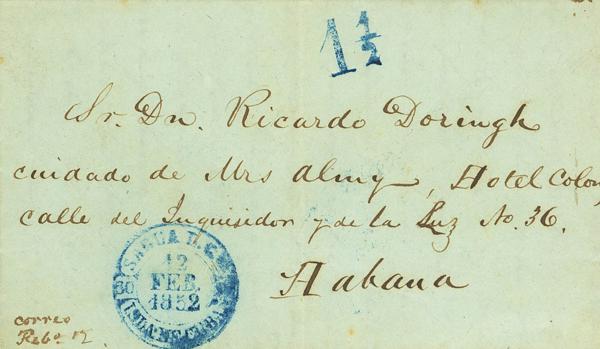 1 1/2
Sr. Dn. Ricardo Doringh
cuidado de Mrs Almy, Hotel Colon,
calle del Inquisidor y de la Luz No. 36.
Habana
SAGUA
12
FEB.
1852
ISLA DE CUBA
correo
Feb. 12